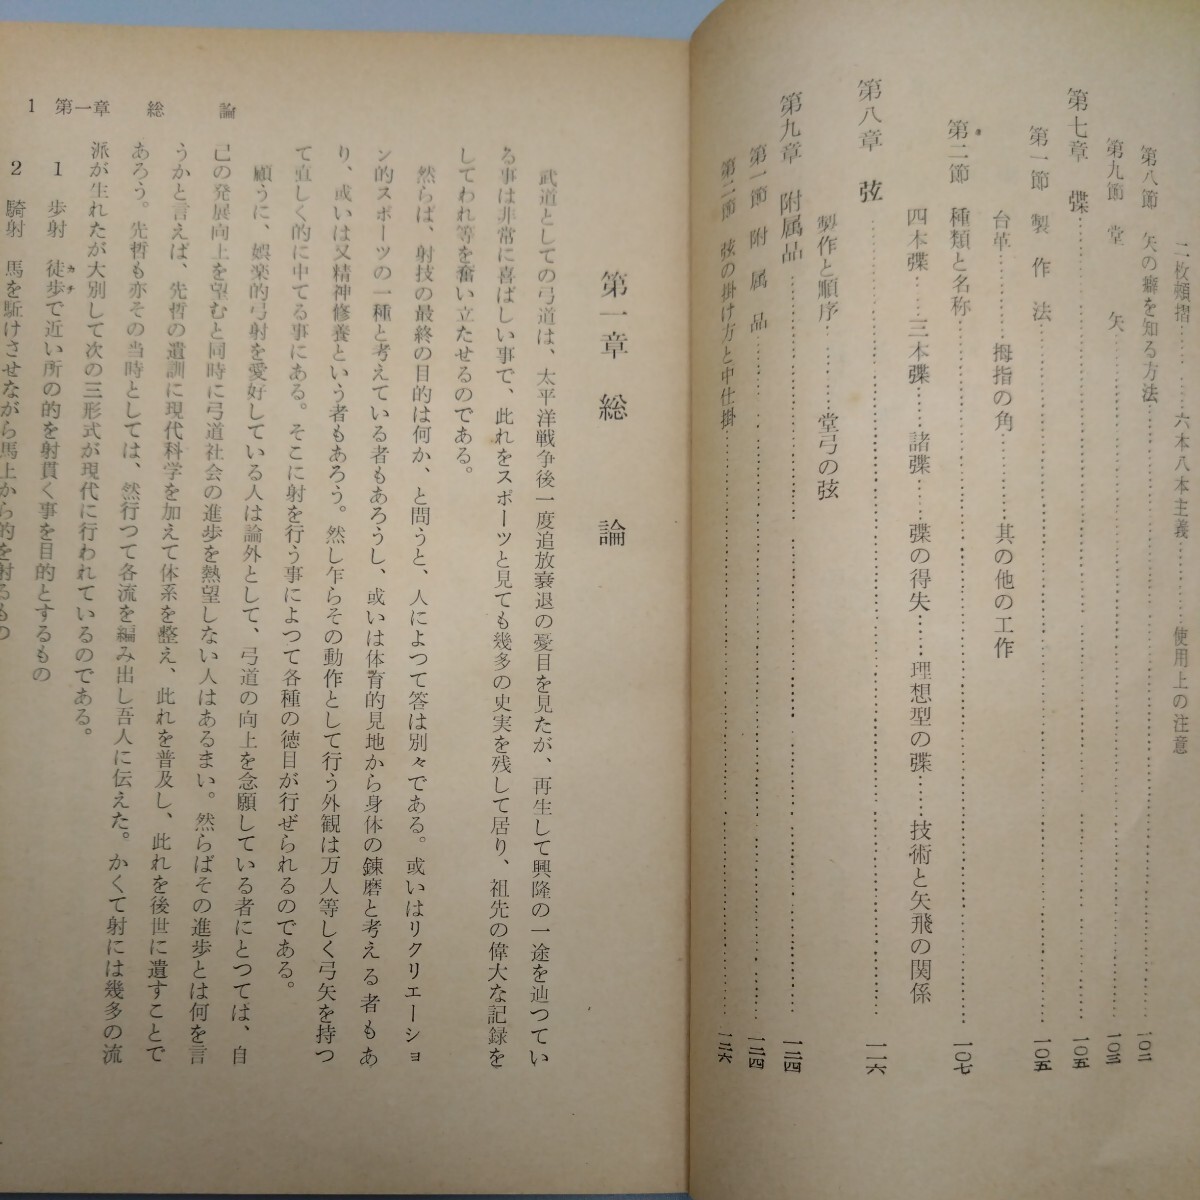 二枚頬摺……六本八本主義……使用上の注意
第八節 矢の癖を知る方法……一〇二
第九節 堂矢……一〇三
第七章 弽……一〇五
第一節 製作法……一〇五
台革……拇指の角……其の他の工作
第二節 種類と名称……一〇七
四本弽……三本弽……諸弽……弽の得失……理想型の弽……技術と矢飛の関係
第八章 弦……一一六
製作と順序……堂弓の弦
第九章 附属品……一二四
第一節 附属品……一二四
第二節 弦の掛け方と中仕掛……一二六
1 第一章 総論
第一章 総論
武道としての弓道は、太平洋戦争後一度追放衰退の憂目を見たが、再生して興隆の一途を辿つてい
る事は非常に喜ばしい事で、此れをスポーツと見ても幾多の史実を残して居り、祖先の偉大な記録を
してわれ等を奮い立たせるのである。
然らば、射技の最終の目的は何か、と問うと、人によつて答は別々である。或いはリクリエーショ
ン的スポーツの一種と考えている者もあろうし、或いは体育的見地から身体の錬磨と考える者もあ
り、或いは又精神修養という者もあろう。然し乍らその動作として行う外観は万人等しく弓矢を持つ
て直しく的に中てる事にある。そこに射を行う事によつて各種の徳目が行ぜられるのである。
顧うに、娯楽的弓射を愛好している人は論外として、弓道の向上を念願している者にとつては、自
己の発展向上を望むと同時に弓道社会の進歩を熱望しない人はあるまい。然らばその進歩とは何を言
うかと言えば、先哲の遺訓に現代科学を加えて体系を整え、此れを普及し、此れを後世に遺すことで
あろう。先哲も亦その当時としては、然行つて各流を編み出し吾人に伝えた。かくて射には幾多の流
派が生れたが大別して次の三形式が現代に行われているのである。
1 歩射 徒歩カチで近い所の的を射貫く事を目的とするもの
2 騎射 馬を駈けさせながら馬上から的を射るもの